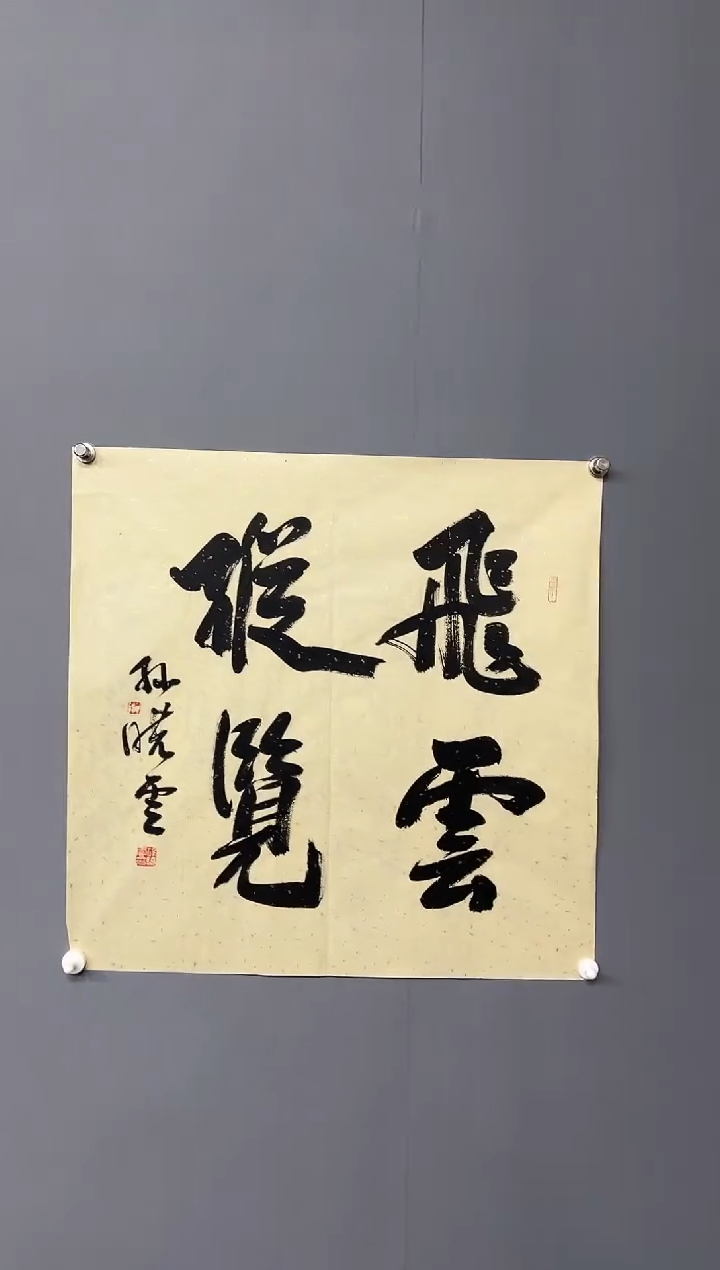 飛雲
縱覽
孫曉雲